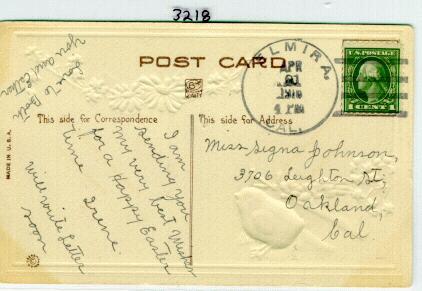 3218
POST CARD
ELMIRA,
APR
21
4 PM
CAL.
U.S. POSTAGE
1 CENT 1
This side for Correspondence
This side for Address
MADE IN U.S.A.
I am
sending you
my very best Wishes
for a Happy Easter
time
Irene.
will write Letter
soon
Love to Both
you and
Miss Signa Johnson,
3706 Leighton St,
Oakland,
Cal.